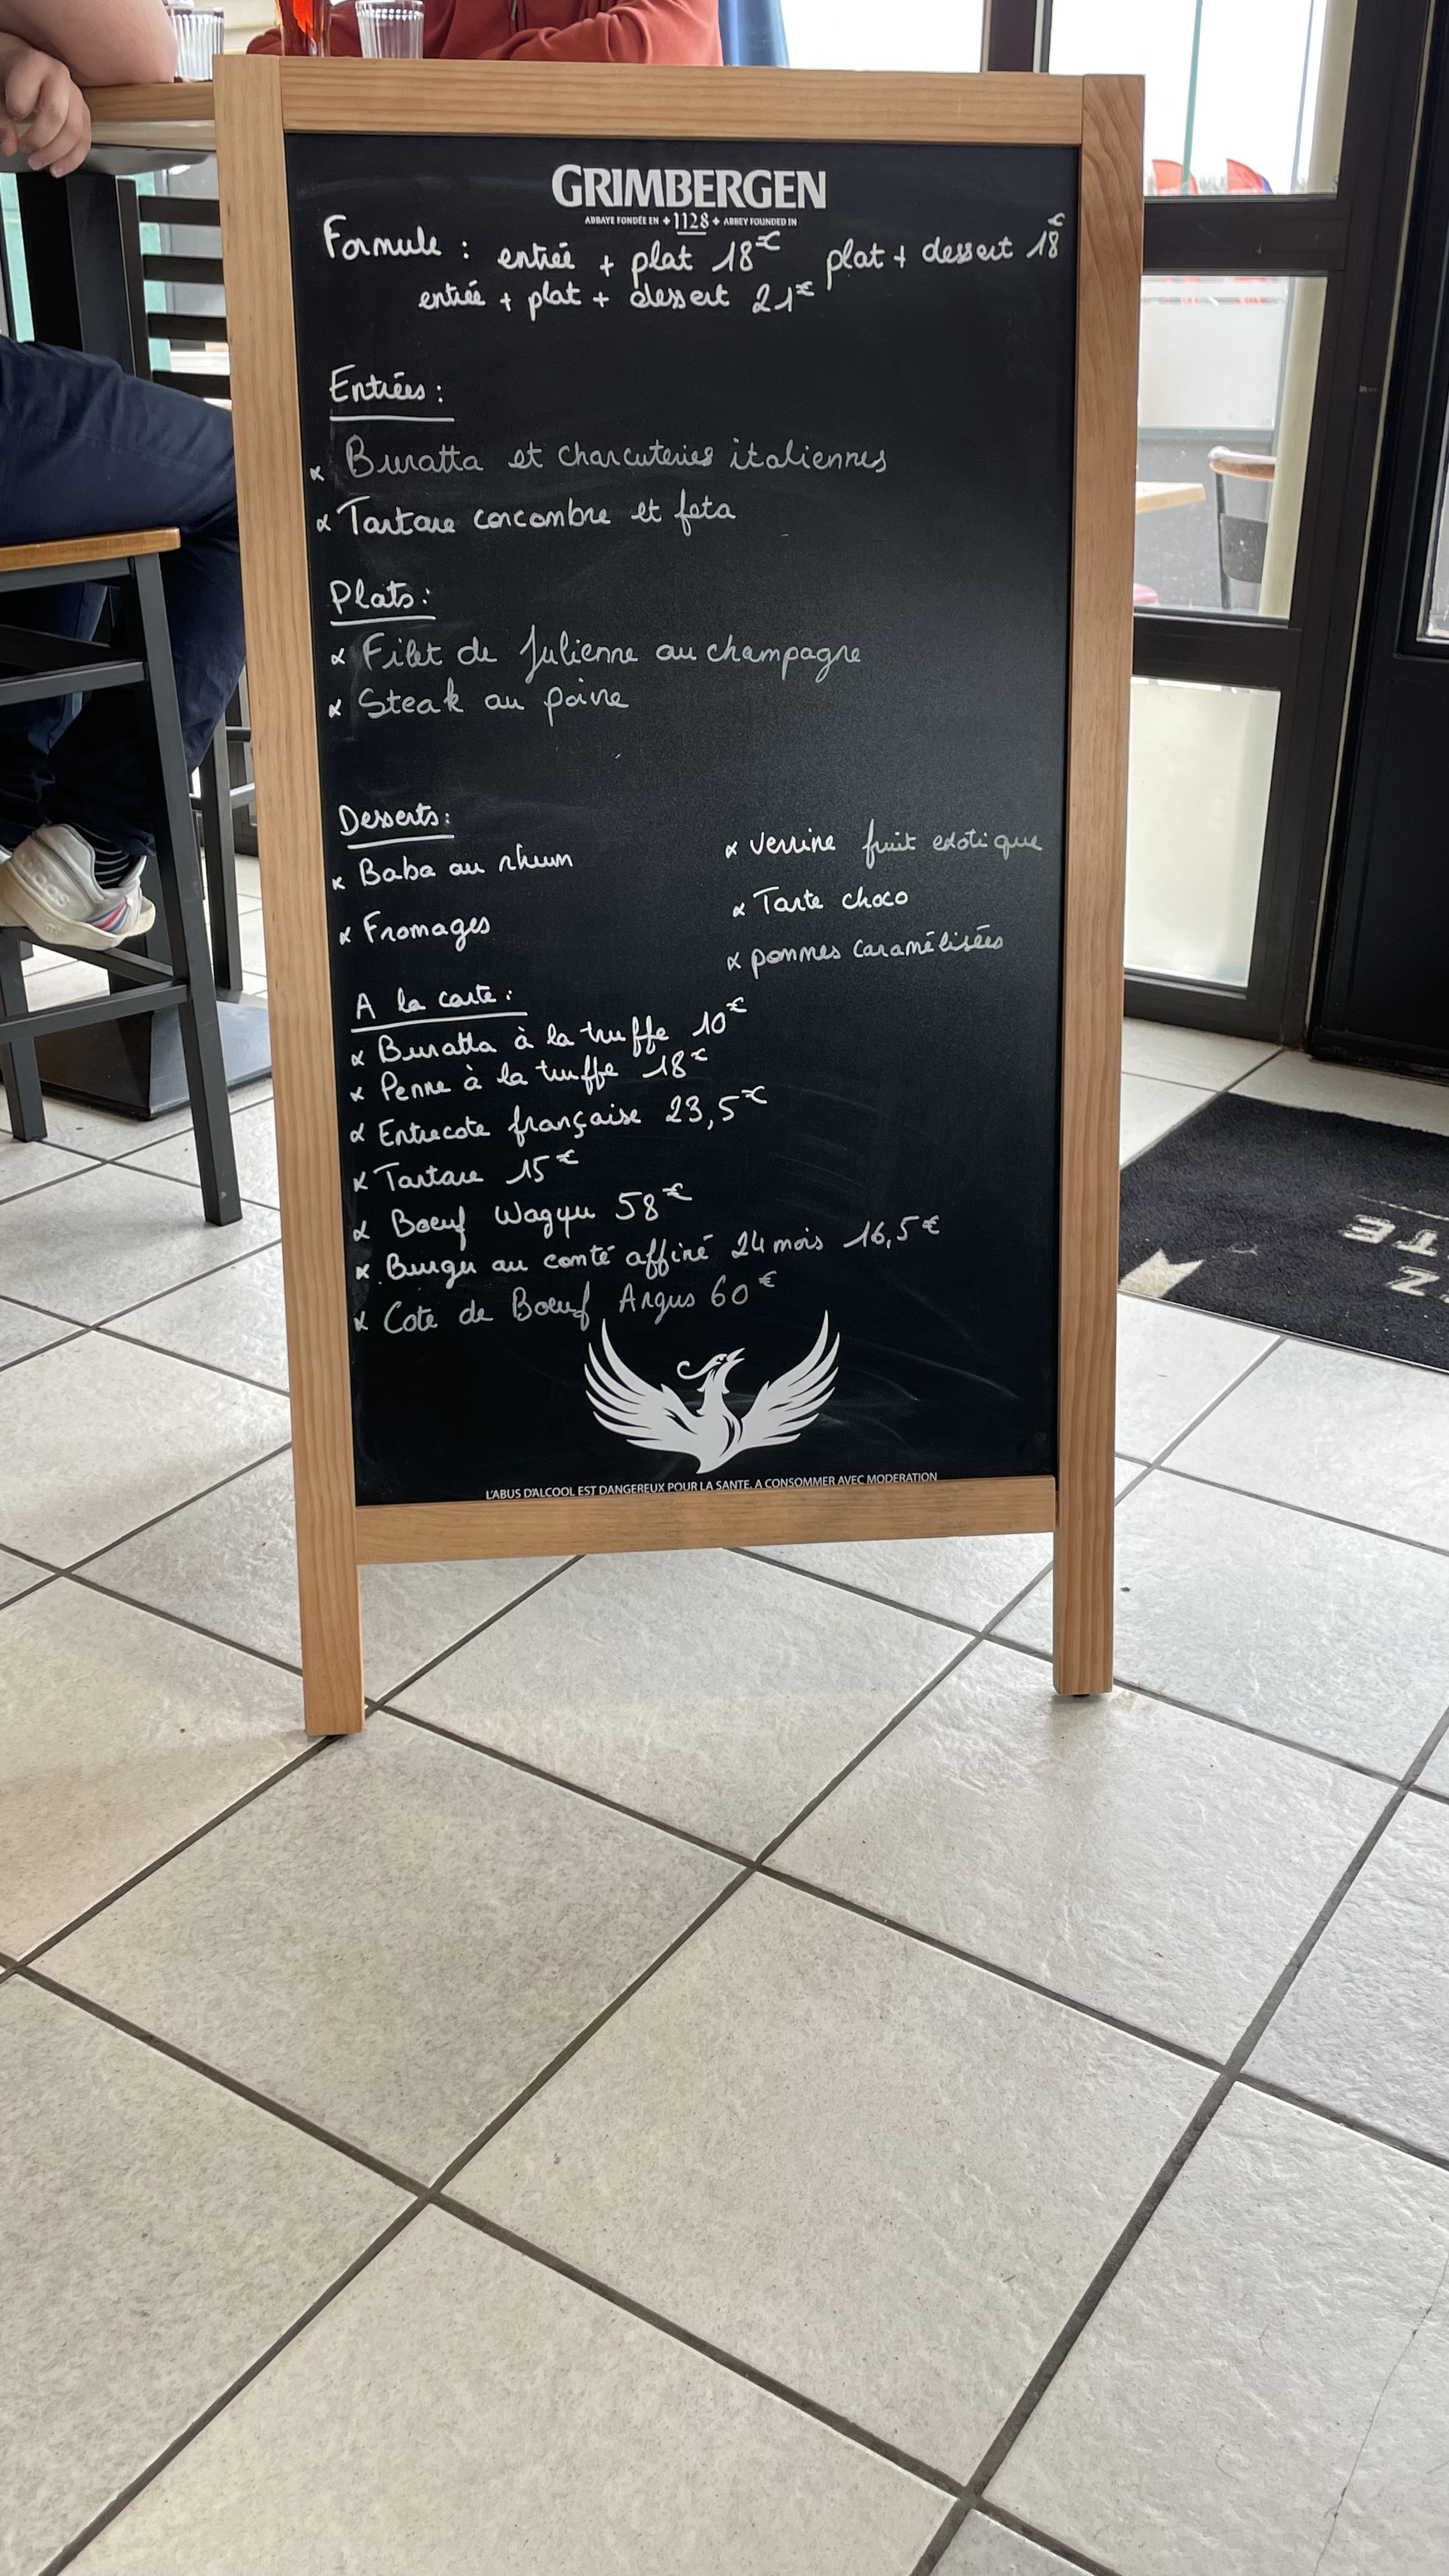 GRIMBERGEN
ABBAYE FONDÉE EN + 1128 + ABBEY FOUNDED IN
Formule : entrée + plat 18€ plat + dessert 18€
entrée + plat + dessert 21€
Entrées :
x Buratta et charcuteries italiennes
x Tartare concombre et feta
Plats :
x Filet de Julienne au champagne
x Steak au poivre
Desserts :
x Baba au rhum
x Fromages
x Verrine fruit exotique
x Tarte choco
x pommes caramélisées
A la carte :
x Buratta à la truffe 10€
x Penne à la truffe 18€
x Entrecote française 23,5€
x Tartare 15€
x Boeuf Wagyu 58€
x Burger au comté affiné 24 mois 16,5€
x Cote de Boeuf Angus 60€
L'ABUS D'ALCOOL EST DANGEREUX POUR LA SANTE. A CONSOMMER AVEC MODERATION